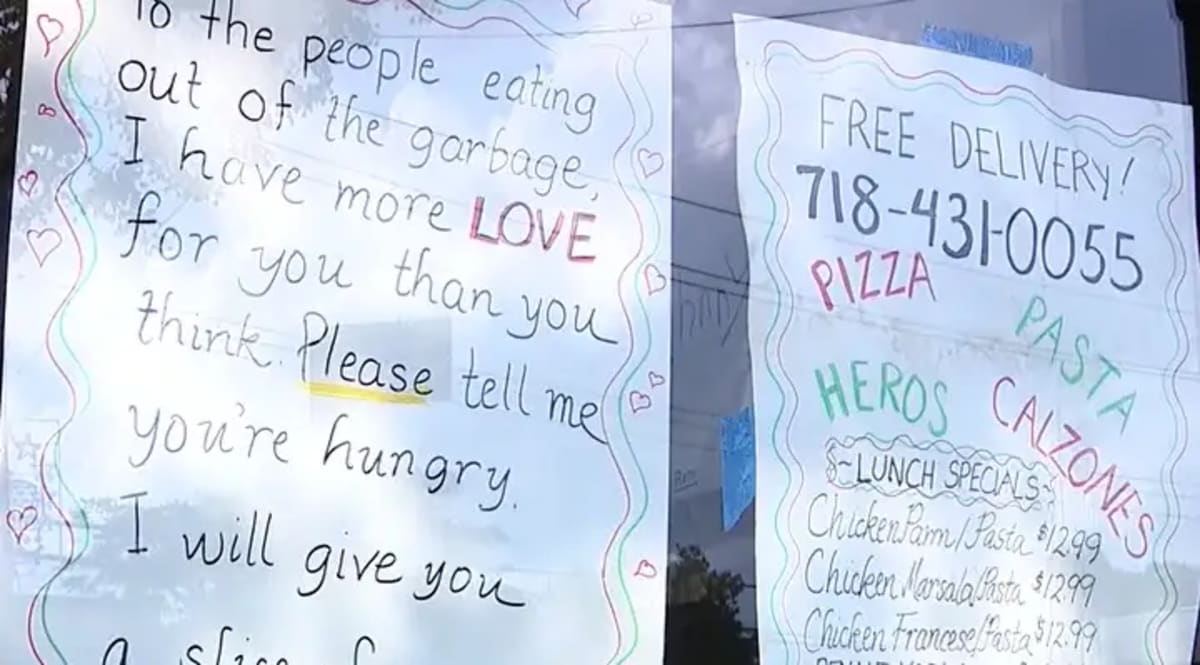 To the people eating
out of the garbage,
I have more LOVE
for you than you
think. Please tell me
you're hungry.
I will give you
a slice
FREE DELIVERY!
718-431-0055
PIZZA
PASTA
HEROS
CALZONES
LUNCH SPECIALS
Chicken Parm/Pasta $12.99
Chicken Marsala/Pasta $12.99
Chicken Francese/Pasta $12.99